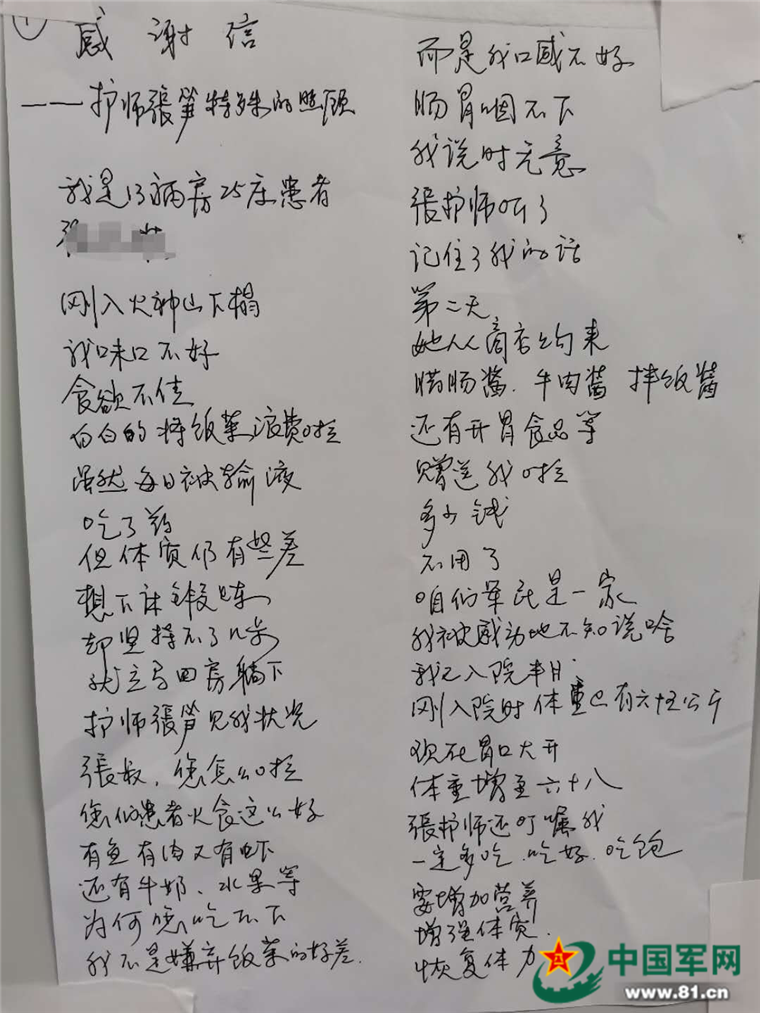 ①
感谢信
——护师張笋特殊的照顾
我是13病房25床患者
張
刚入火神山下榻
我味口不好
食欲不佳
白白的将饭菜浪费啦
虽然每日被输液
吃了药
但体质仍有些差
想下床锻炼
却坚持不了几步
就立马回房躺下
护师張笋见我状况
張叔，您怎么啦
您们患者火食这么好
有鱼有肉又有虾
还有牛奶、水果等
为何您吃不下
我不是嫌弃饭菜的好差.
而是我口感不好
肠胃咽不下
我说时无意
張护师听了
记住了我的话
第二天
她从商店购来
腊肠酱.牛肉酱 拌饭酱
还有开胃食品等
赠送我啦
多少钱
不用了
咱们军民是一家
我被感动地不知说啥
我已入院半月.
刚入院时体重只有六十五公斤
现在胃口大开
体重增至六十八
張护师还叮嘱我
一定多吃.吃好.吃饱
要增加营养
增强体质.
恢复体力
中国军网
www.81.cn